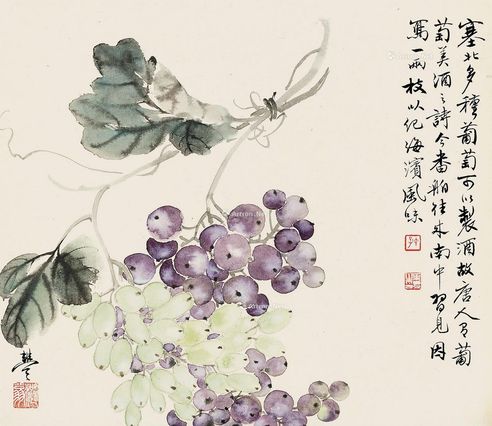 塞北多種葡萄可以製酒故唐人有葡
萄美酒之詩今番舶往來南中習見因
寫一兩枝以紀海濱風味